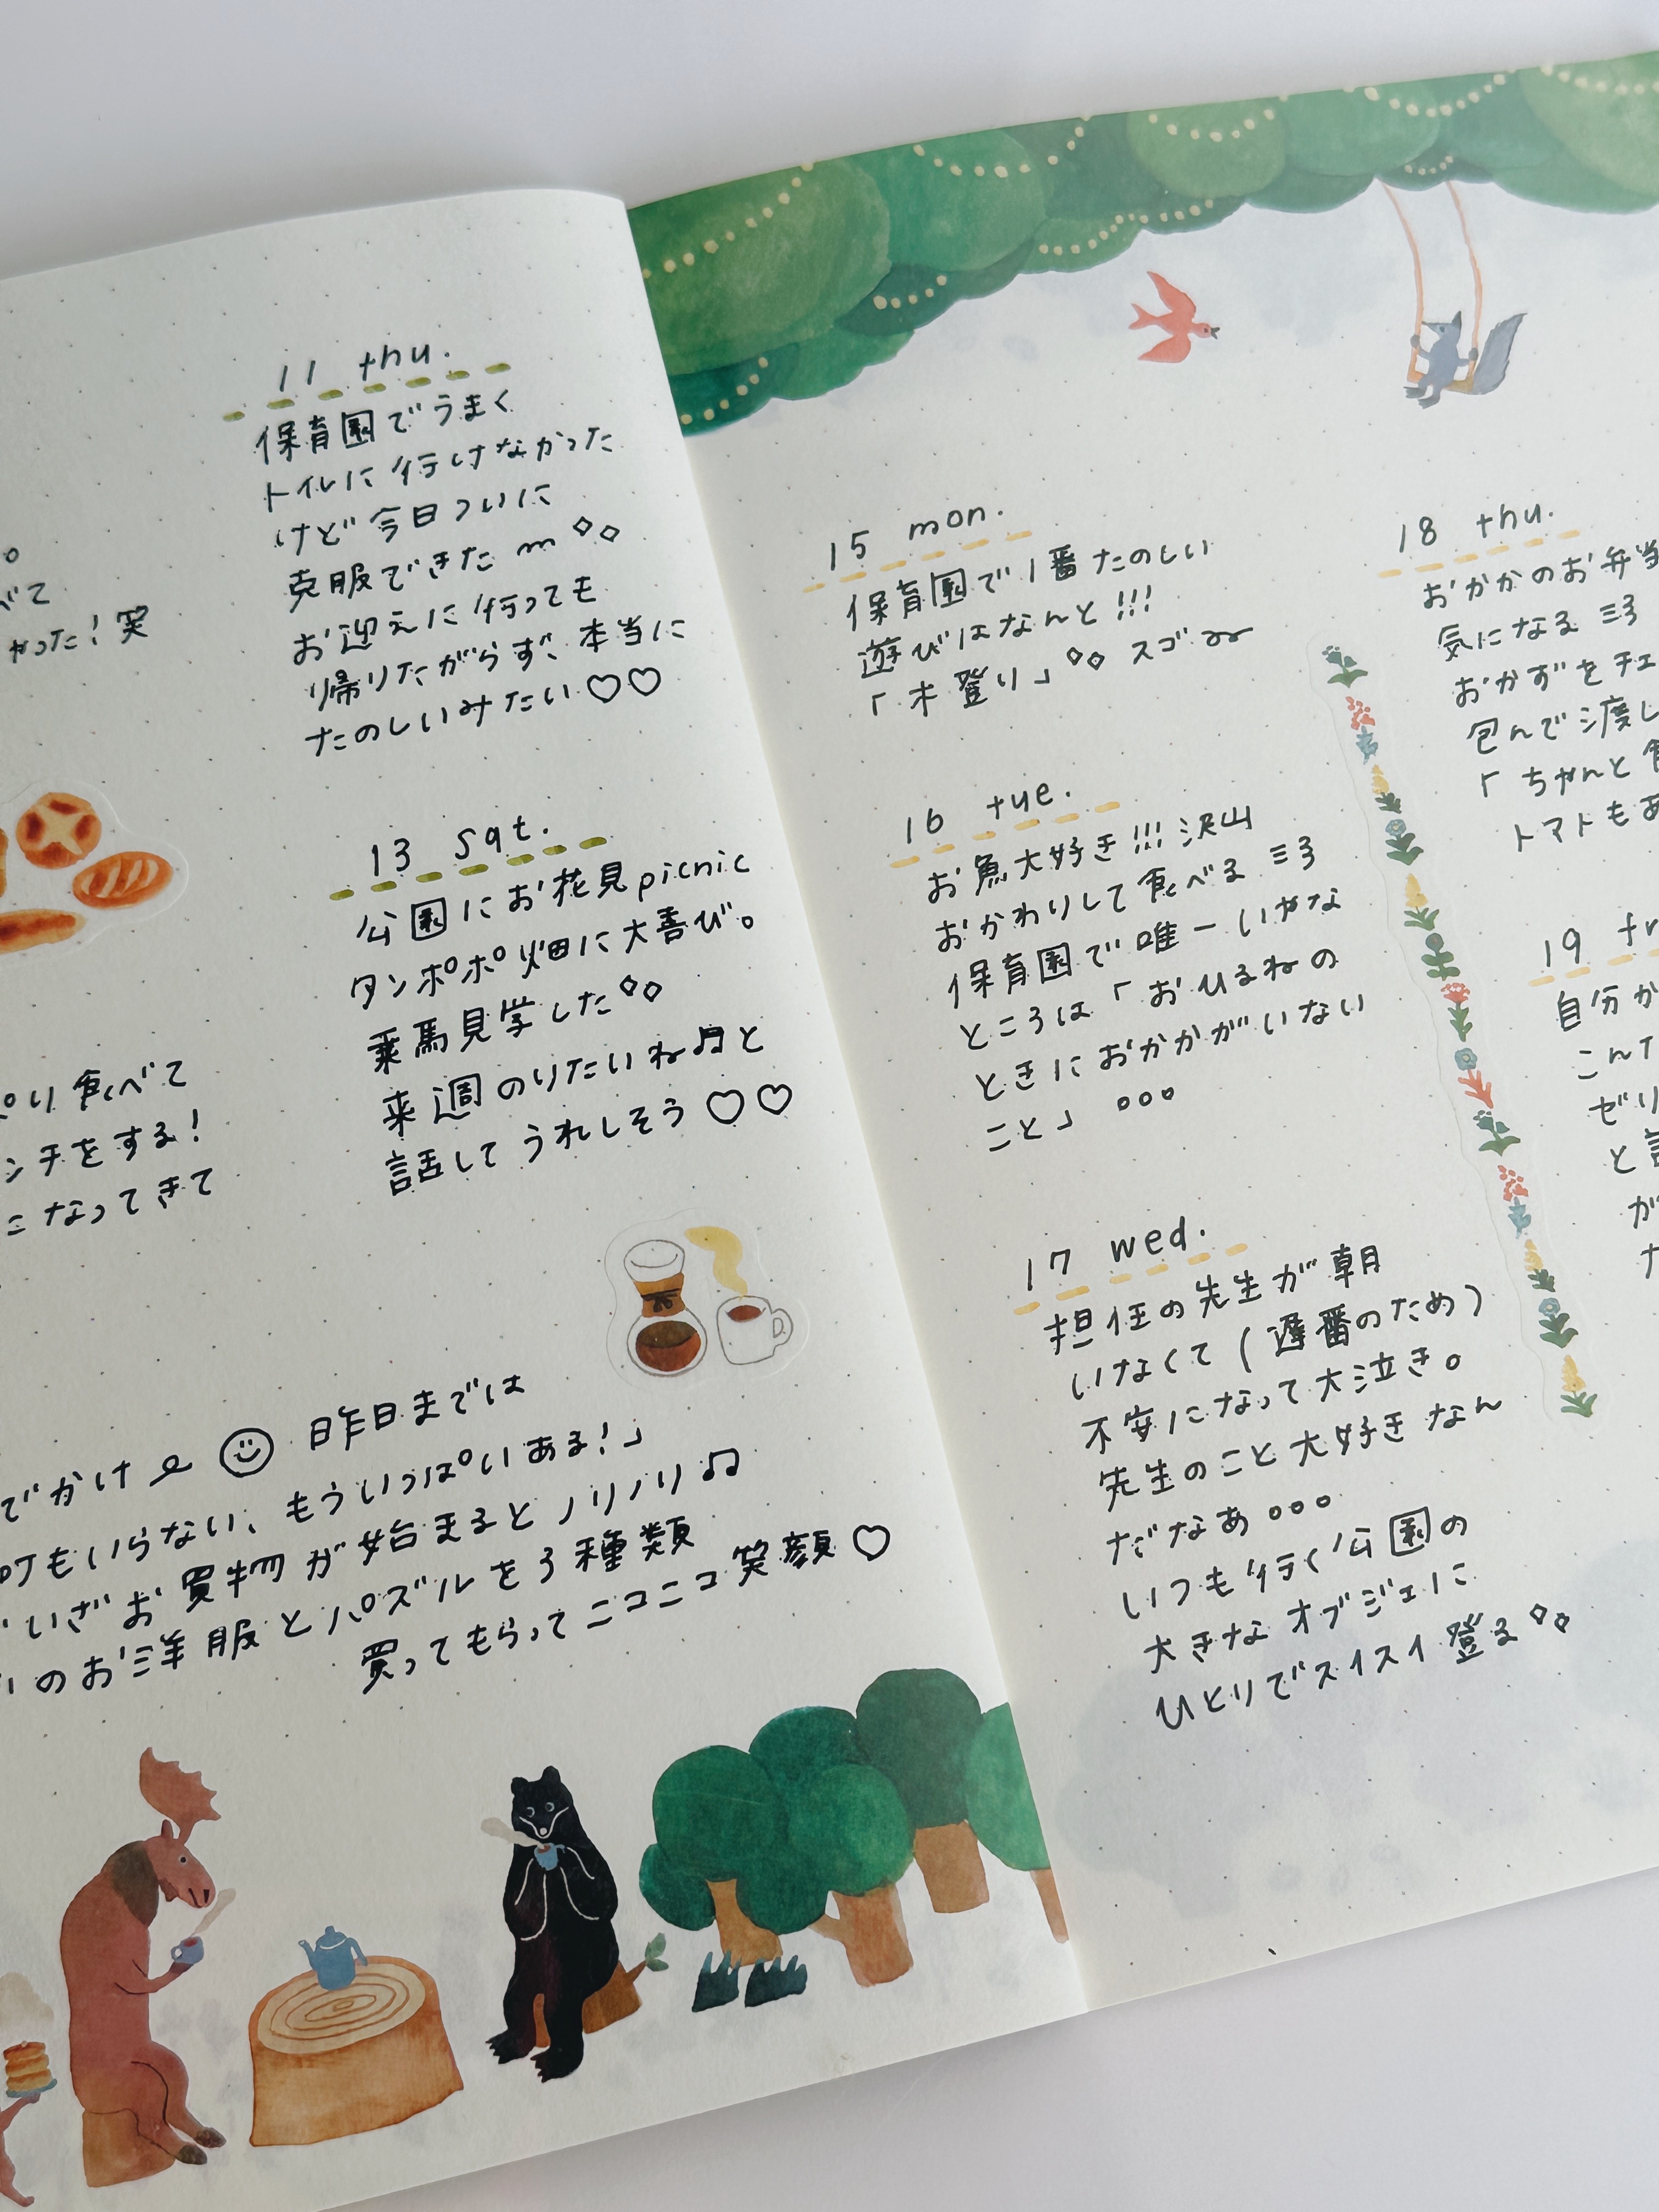 べて
やった！笑
ぱり食べて
ンチをする！
になってきて
11 thu.
保育園でうまく
トイレに行けなかった
けど今日ついに
克服できた
お迎えに行っても
帰りたがらず、本当に
たのしいみたい♡♡
13 Sat.
公園にお花見picnic
タンポポ畑に大喜び。
乗馬見学した
来週のりたいね♬と
話してうれしそう♡♡
でかけ 昨日までは
もいらない、もういっぱいある！」
いざお買物が始まるとノリノリ♫
のお洋服とパズルを3種類
買ってもらってニコニコ笑顔♡
15 mon.
保育園で1番たのしい
遊びはなんと!!!
「木登り」スゴ
16 tue.
お魚大好き!!!沢山
おかわりして食べる
保育園で唯一いやな
ところは「おひるねの
ときにおかかがいない
こと」。。。
17 wed.
担任の先生が朝
いなくて（遅番のため）
不安になって大泣き。
先生のこと大好きなん
だなあ。。。
いつも行く公園の
大きなオブジェに
ひとりでスイスイ登る
18 thu.
おかかのお弁当
気になる
おかずをチェ
包んで渡し
「ちゃんと
トマトもあ
19 fr
自分か
こんな
ゼリ
と
が